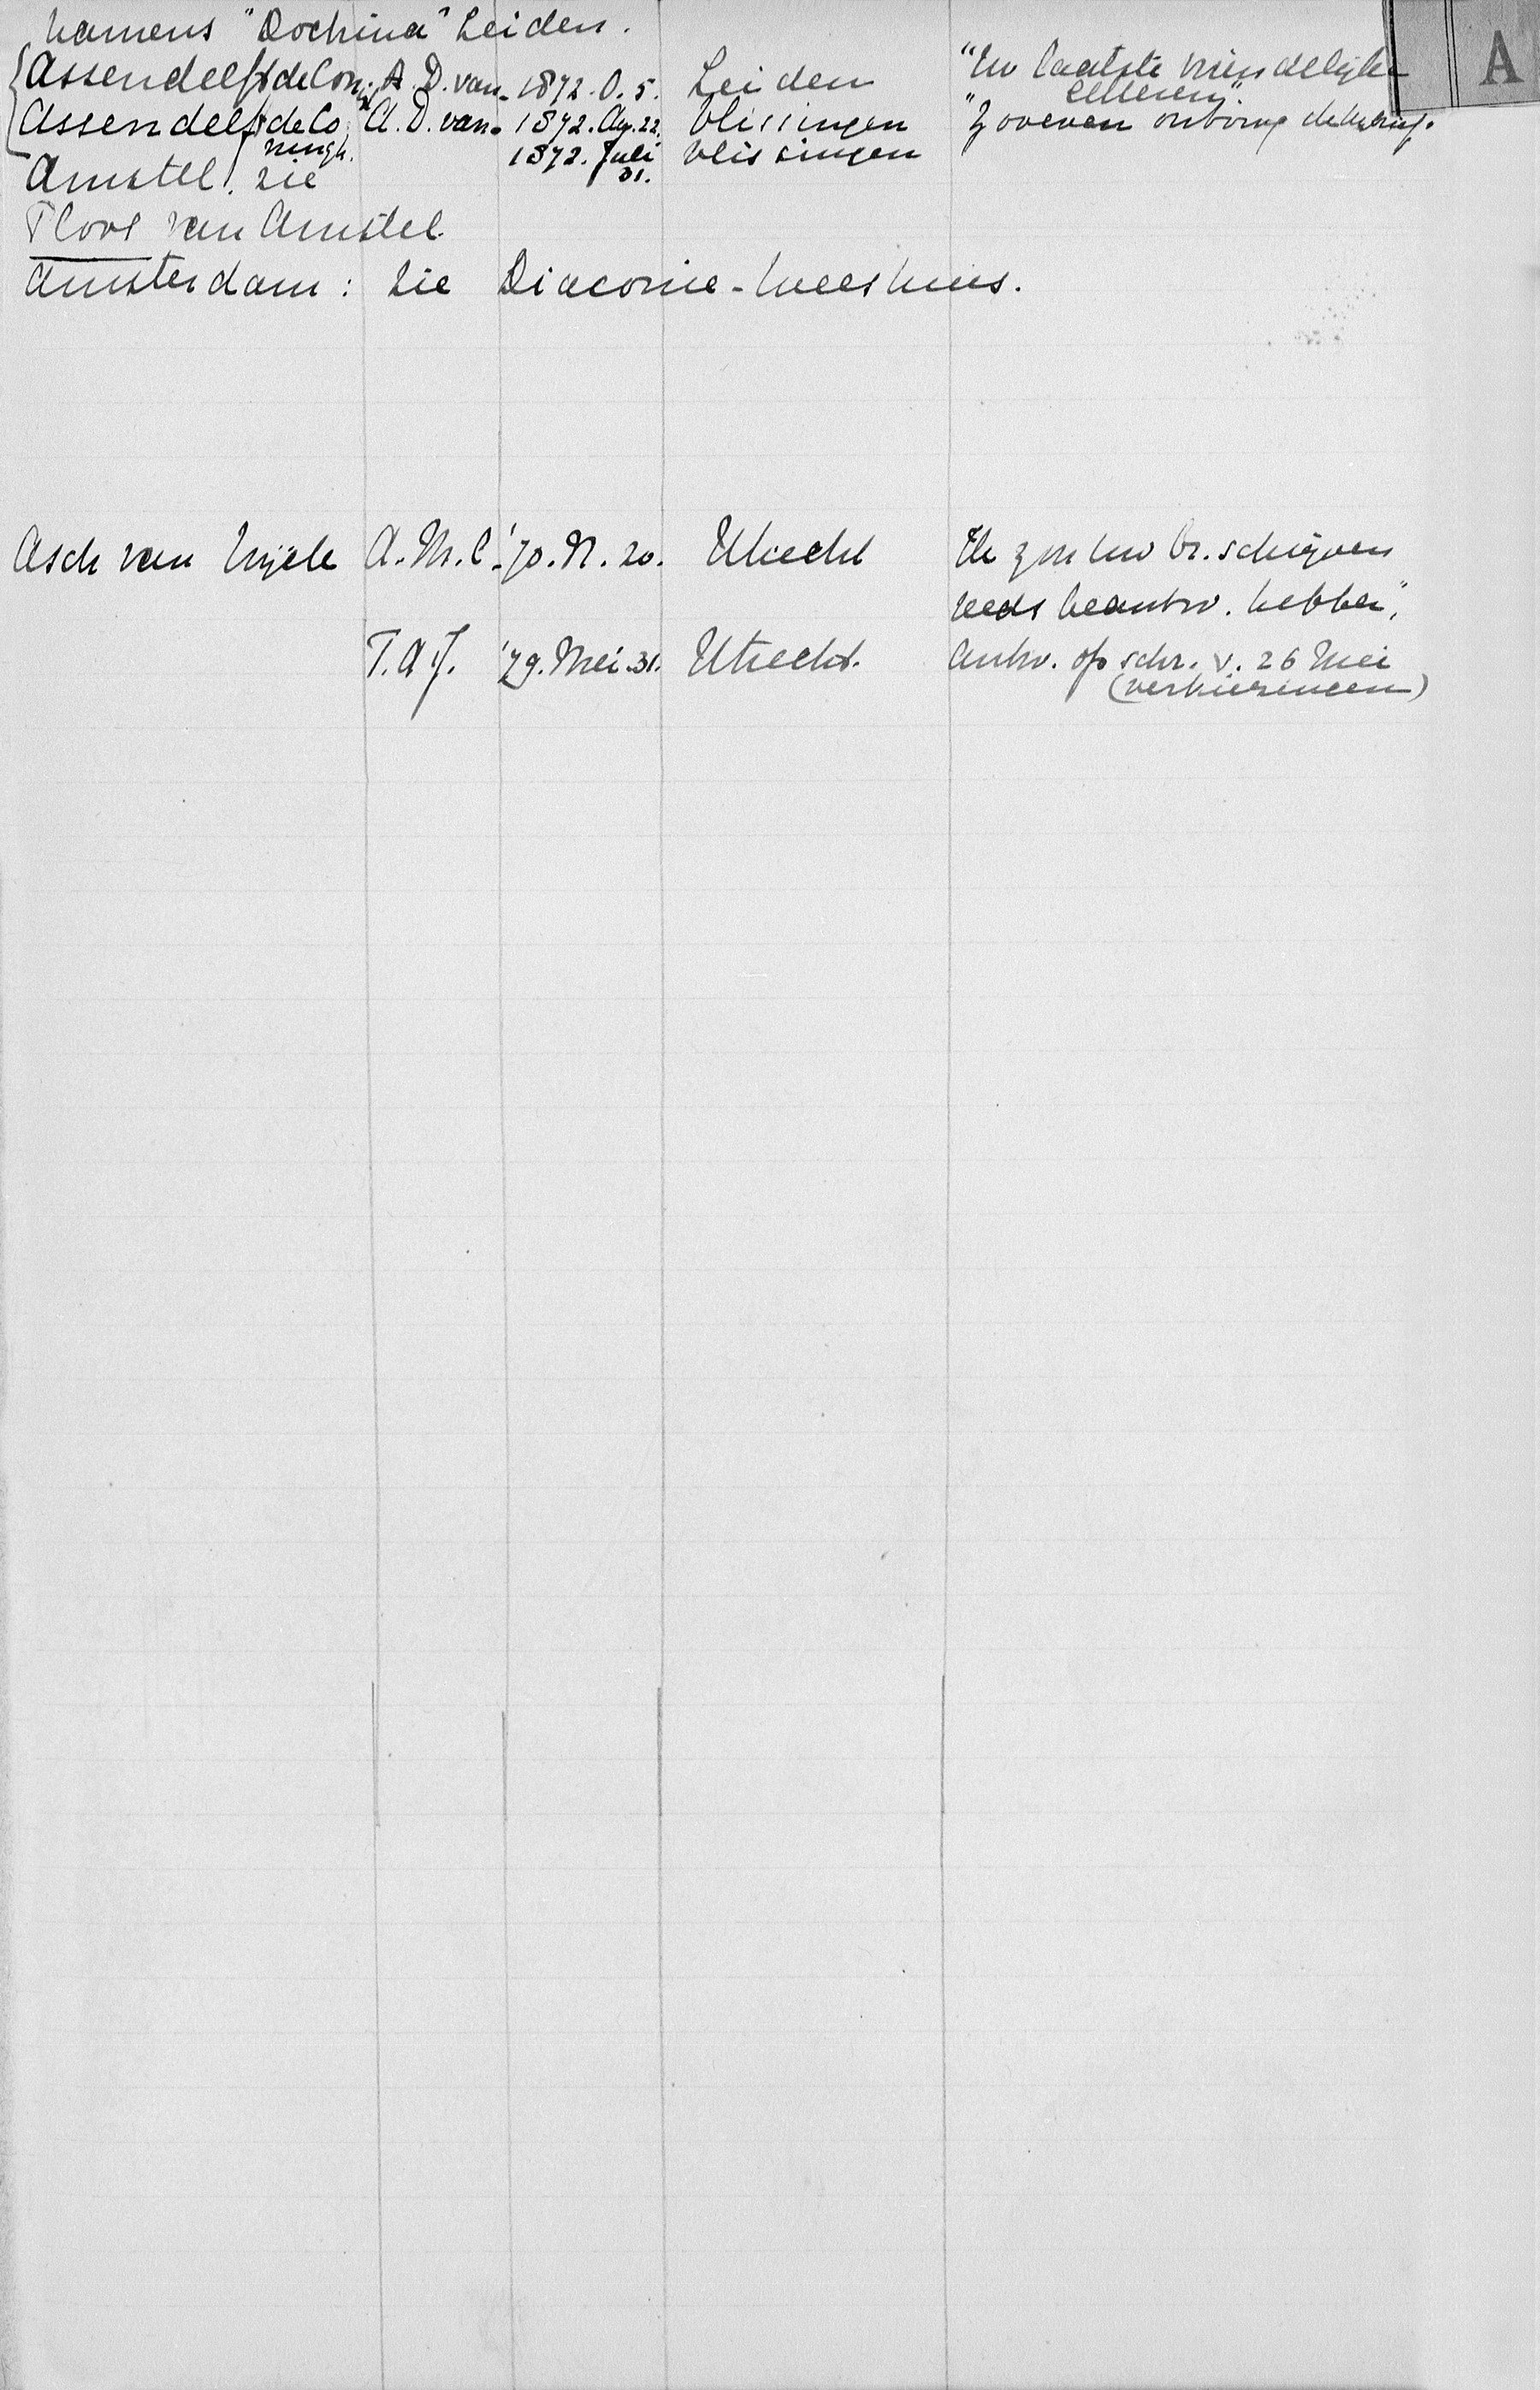 A
namens "Dochina" Leiden.
Assendelft de Con. A. D. van. 1872. O. 5. Leiden "Uw laatste vriendelijke letteren".
Assendelft de Coningh. A. D. van. 1872. Aug. 22. Vlissingen "Zoeven ontving
1872. Juli 31. Vlissingen
Amstel. zie
Ploos van Amstel.
Amsterdam: zie Diaconie-Weeshuis.
Asch van Wijck A. M. C. '70. N. 20. Utrecht Ik zou uw br. schrijven
reeds beantw. hebben",
T. A. J. '79. Mei 31. Utrecht. Antw. op schr. v. 26 Mei
(verkiezingen)